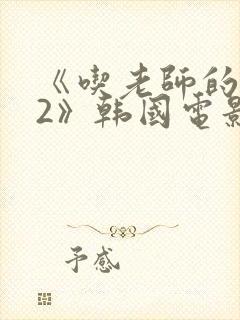 《喫老師的
2》韩國電影
予感